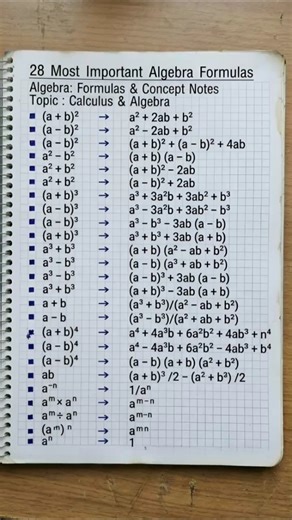 28 Most Important Algebra Formulas
Algebra: Formulas & Concept Notes
Topic : Calculus & Algebra
▪ (a + b)² → a² + 2ab + b²
▪ (a − b)² → a² − 2ab + b²
▪ (a − b)² → (a + b)² + (a − b)² + 4ab
▪ a² − b² → (a + b) (a − b)
▪ a² + b² → (a + b)² − 2ab
▪ a² + b² → (a − b)² + 2ab
▪ (a + b)³ → a³ + 3a²b + 3ab² + b³
▪ (a − b)³ → a³ − 3a²b + 3ab² − b³
▪ (a − b)³ → a³ − b³ − 3ab (a − b)
▪ (a + b)³ → a³ + b³ + 3ab (a + b)
▪ a³ + b³ → (a + b) (a² − ab + b²)
▪ a³ − b³ → (a − b) (a³ + ab + b²)
▪ a³ − b³ → (a − b)³ + 3ab (a − b)
▪ a³ + b³ → (a + b)³ − 3ab (a + b)
▪ a + b → (a³ + b³)/(a² − ab + b²)
▪ a − b → (a³ − b³)/(a² + ab + b²)
▪ (a + b)⁴ → a⁴ + 4a³b + 6a²b² + 4ab³ + n⁴
▪ (a − b)⁴ → a⁴ − 4a³b + 6a²b² − 4ab³ + b⁴
▪ (a − b)⁴ → (a − b) (a + b) (a² + b²)
▪ ab → (a + b)³ /2 − (a² + b³) /2
▪ a⁻ⁿ → 1/aⁿ
▪ aᵐ × aⁿ → aᵐ⁻ⁿ
▪ aᵐ ÷ aⁿ → aᵐ⁻ⁿ
▪ (aᵐ) ⁿ → aᵐⁿ
▪ aⁿ → 1